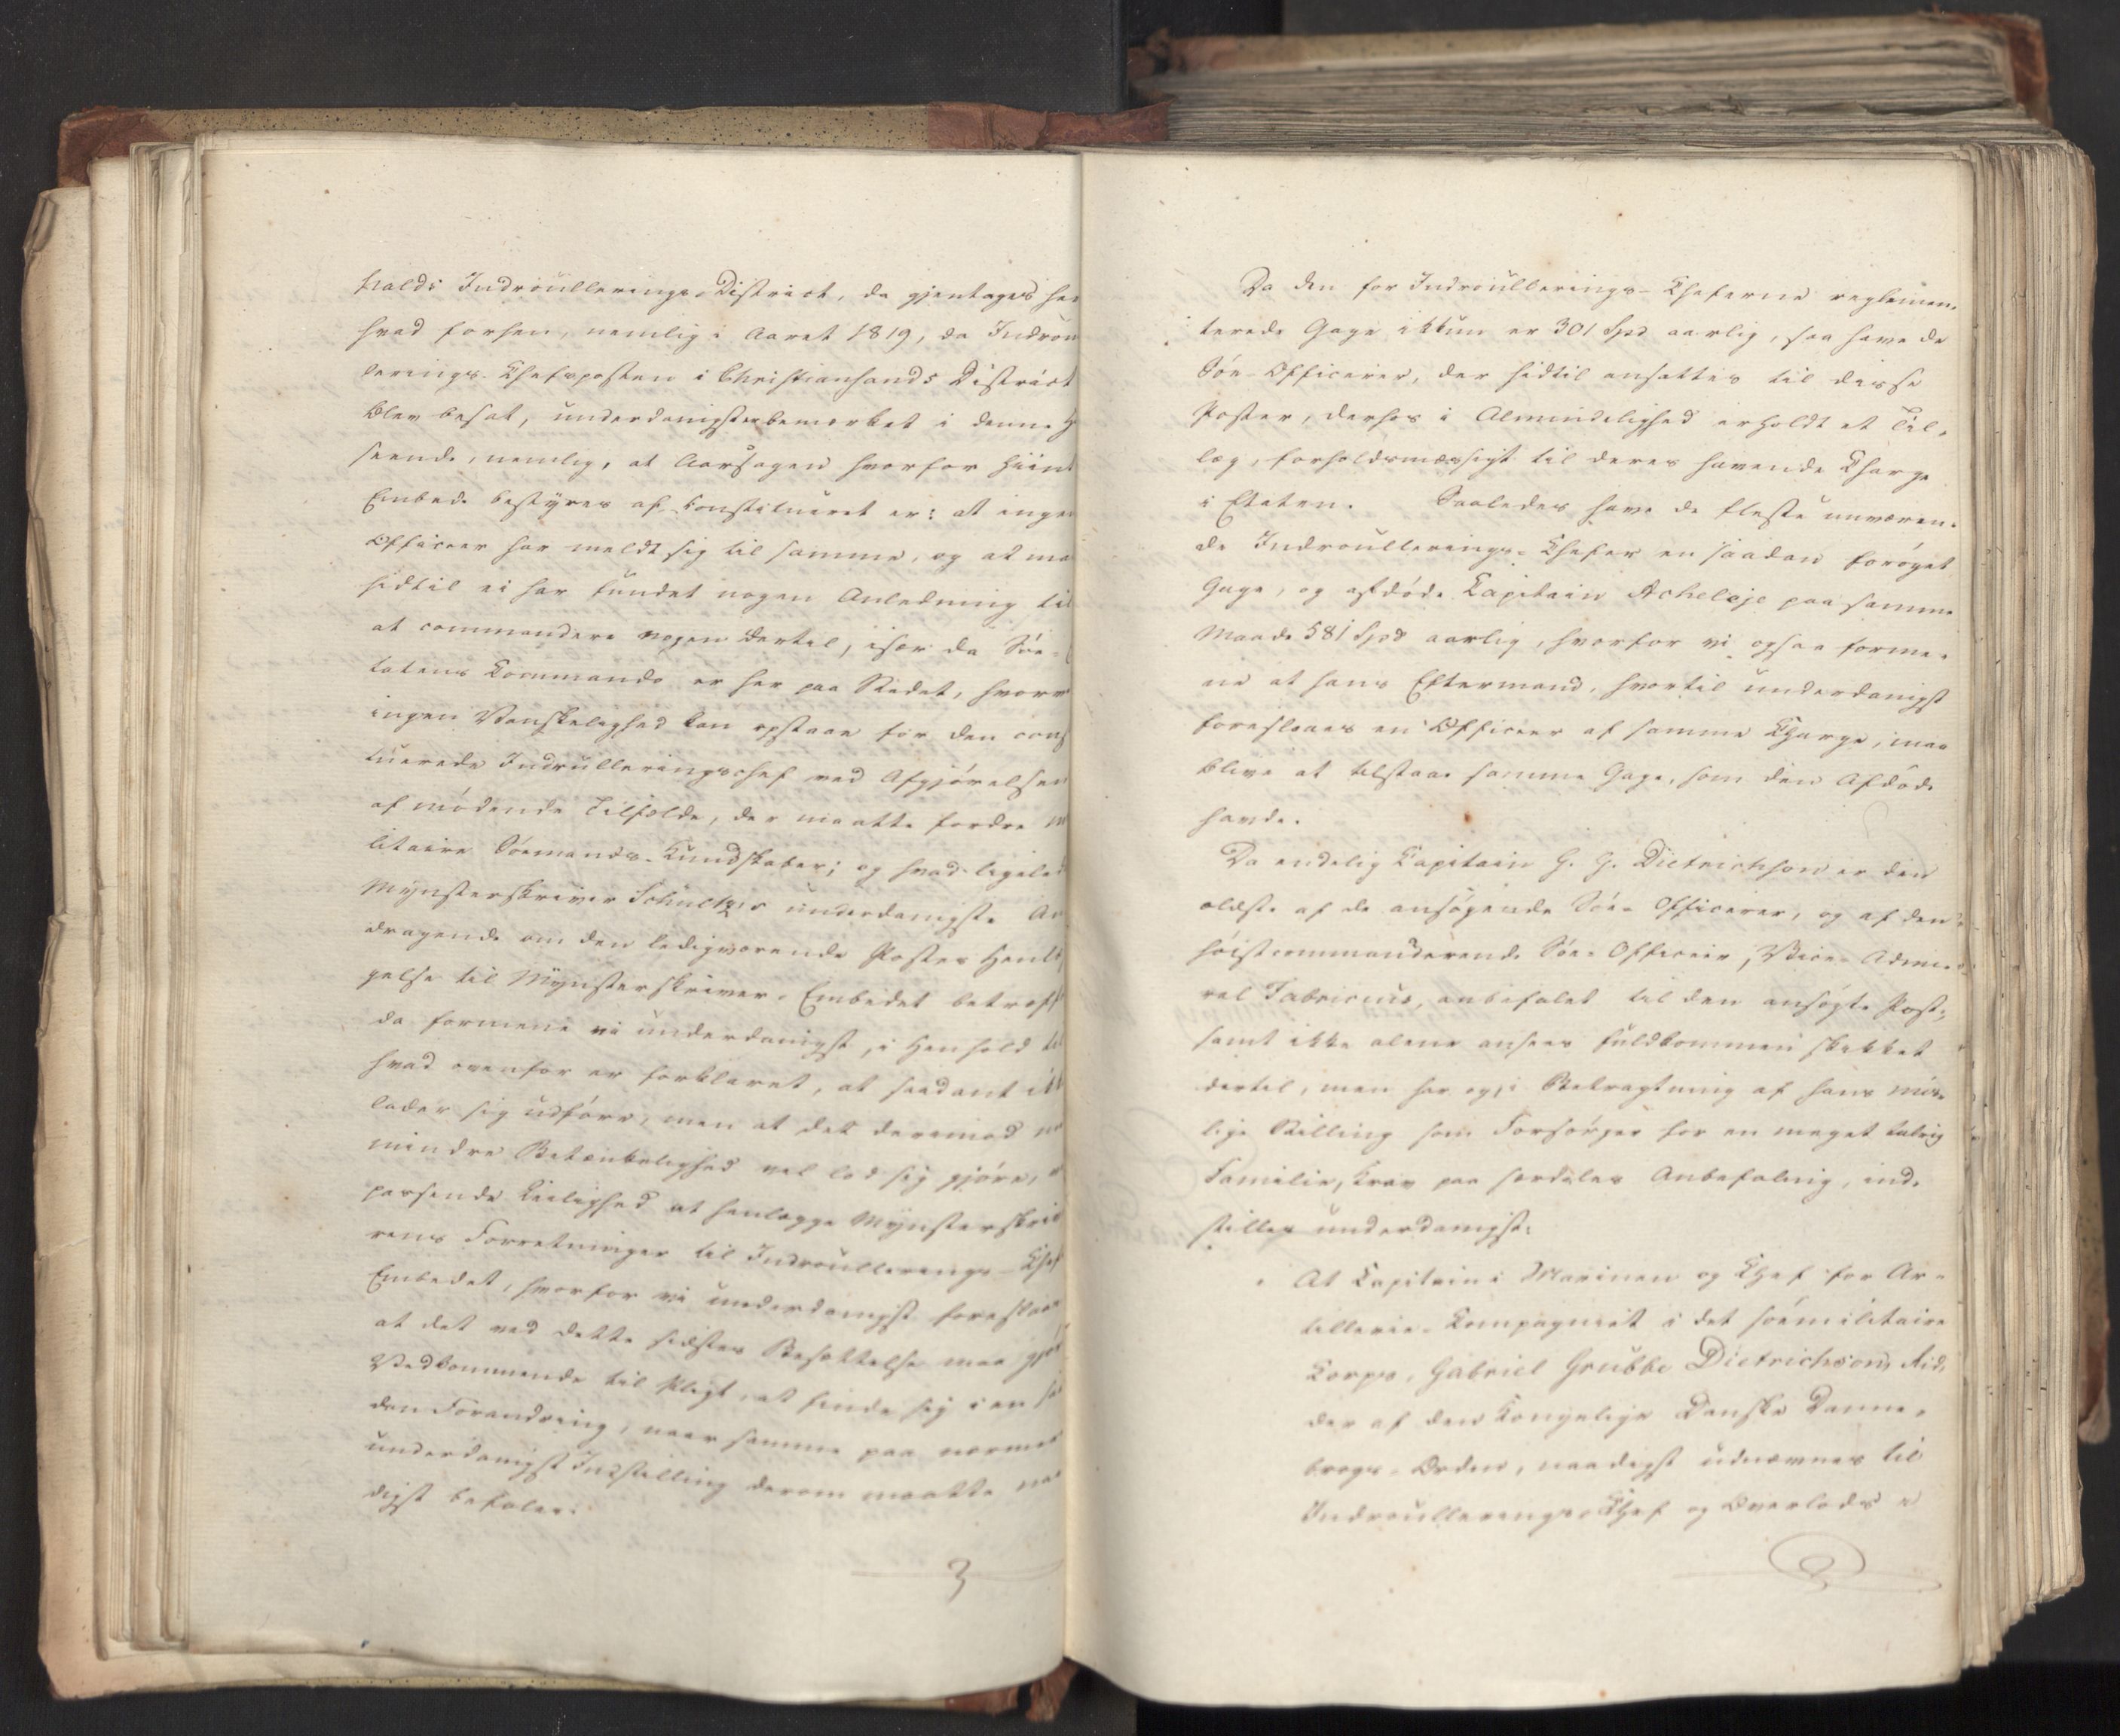 halds Indroullerings-District, da gjentages her
hvad forhen, nemlig i Aaret 1819, da Indroul
lerings-Chefsposten i Christiansands District
blev besat, underdanigst er bemærket i denne H
seende, nemlig, at Aarsagen hvorfor hiint
Embede bestyres af constitueret er: at ingen
Officeer har meldt sig til samme, og at ma
hidtil ei har fundet nogen Anledning til
at commandere nogen dertil, især da Søe-
tatens Commando er her paa Stedet, hvorv
ingen Vanskelighed kan opstaae for den cons
tuerede Indrulleringschef ved Afgjørelsen
af mødende Tilfælde, der maatte fordre m
litaire Sømands-Kundskaber; og hvad ligeled
Mynsterskriver Schultzes underdanigste An
dragende om den ledigværende Postes Henl
gelse til Mynsterskriver-Embedet betræff
da formene vi underdanigst, i Henhold til
hvad ovenfor er forklaret, at saadant ikk
lader sig udføre, men at det derimod m
mindre Betænkelighed vel lod sig gjøre, v
passende Leilighed at henlægge Mynsterskri
rens Forretninger til Indroullerings-Chef
Embedet, hvorfor vi underdanigst foreslaae
at det ved dette sidstes Besættelse maa gjør
Vedkommende til Pligt, at finde sig i en saa
dan Forandring, naar samme paa nærmer
underdanigst Indstilling derom maatte naa
digst befales.
Da den for Indroullerings-Cheferne reglemen-
terede Gage ikkun er 301 Spd aarlig, saa have de
Søe-Officerer, der hidtil ansattes til disse
Poster, derhos i Almindelighed erholdt et Til-
læg, forholdsmæssigt til deres havende Charge
i Etaten. Saaledes have de fleste nuværen-
de Indroullerings-Chefer en saadan forøget
Gage, og afdøde Capitain Acheløje paa samme
Maade 581 Spd aarlig, hvorfor vi ogsaa forme-
ne at hans Eftermand, hvortil underdanigst
foreslaaes en Officeer af samme Charge, maa
blive at tilstaae samme Gage, som den Afdøde
havde.
Da endelig Capitain G. G. Dietrichson er den
ældste af de ansøgende Søe-Officerer, og af den
høistcommanderende Søe-Officeer, Vice-Admi-
ral Fabricius, anbefalet til den ansøgte Post,
samt ikke alene ansees fuldkommen skikket
dertil, men har og, i Betragtning af hans mis-
lige Stilling som Forsørger for en meget talrig
Familie, Krav paa særdeles Anbefaling, ind-
stilles underdanigst:
At Capitain i Marinen og Chef for Ar-
tillerie-Compagniet i det søemilitaire
Corps, Gabriel Grubbe Dietrichson, Rid-
der af den Kongelige Danske Danne-
brogs-Orden, naadigst udnævnes til
Indroullerings-Chef og Overlods i